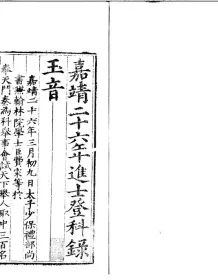 嘉靖二十六年進士登科錄
玉音
嘉靖二十六年三月初九日太子少保禮部尚
書兼翰林院學士臣費寀等於
奉天門奏為科舉事會試天下舉人取中三百名